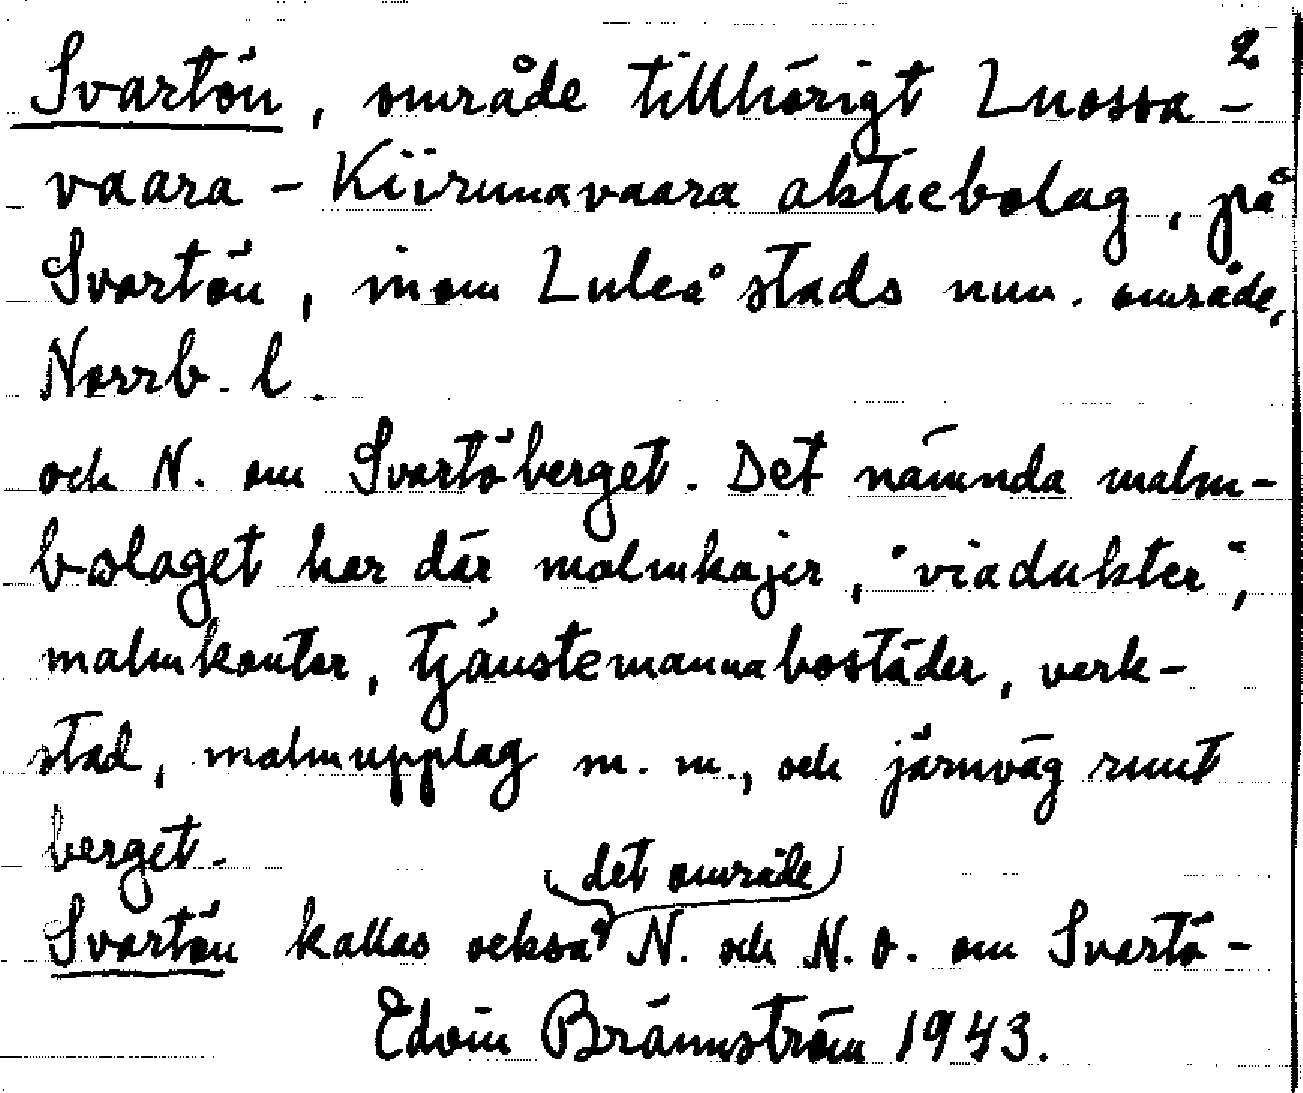 2
Svartön, område tillhörigt Luossa-
vaara-Kiirunavaara aktiebolag, på
Svartön, inom Luleå stads num. område,
Norrb. l.
och N. om Svartöberget. Det nämnda malm-
bolaget har där malmkajer, "viadukter",
malmkontor, tjänstemannabostäder, verk-
stad, malmupplag m. m., och järnväg runt
berget.
det område
Svartön kallas också N. och N.O. om Svartö-
Edvin Brännström 1943.